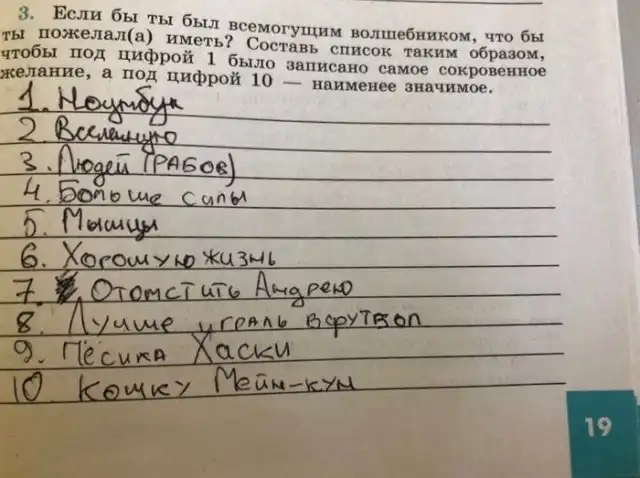 3. Если бы ты был всемогущим волшебником, что бы
ты пожелал(а) иметь? Составь список таким образом,
чтобы под цифрой 1 было записано самое сокровенное
желание, а под цифрой 10 — наименее значимое.
1. Ноутбук
2. Вселенную
3. Людей (РАБОВ)
4. Больше силы
5. Мышцы
6. Хорошую жизнь
7. Отомстить Андрею
8. Лучше играль в футбол
9. Пёсика Хаски
10 Кошку Мейн-кун
19